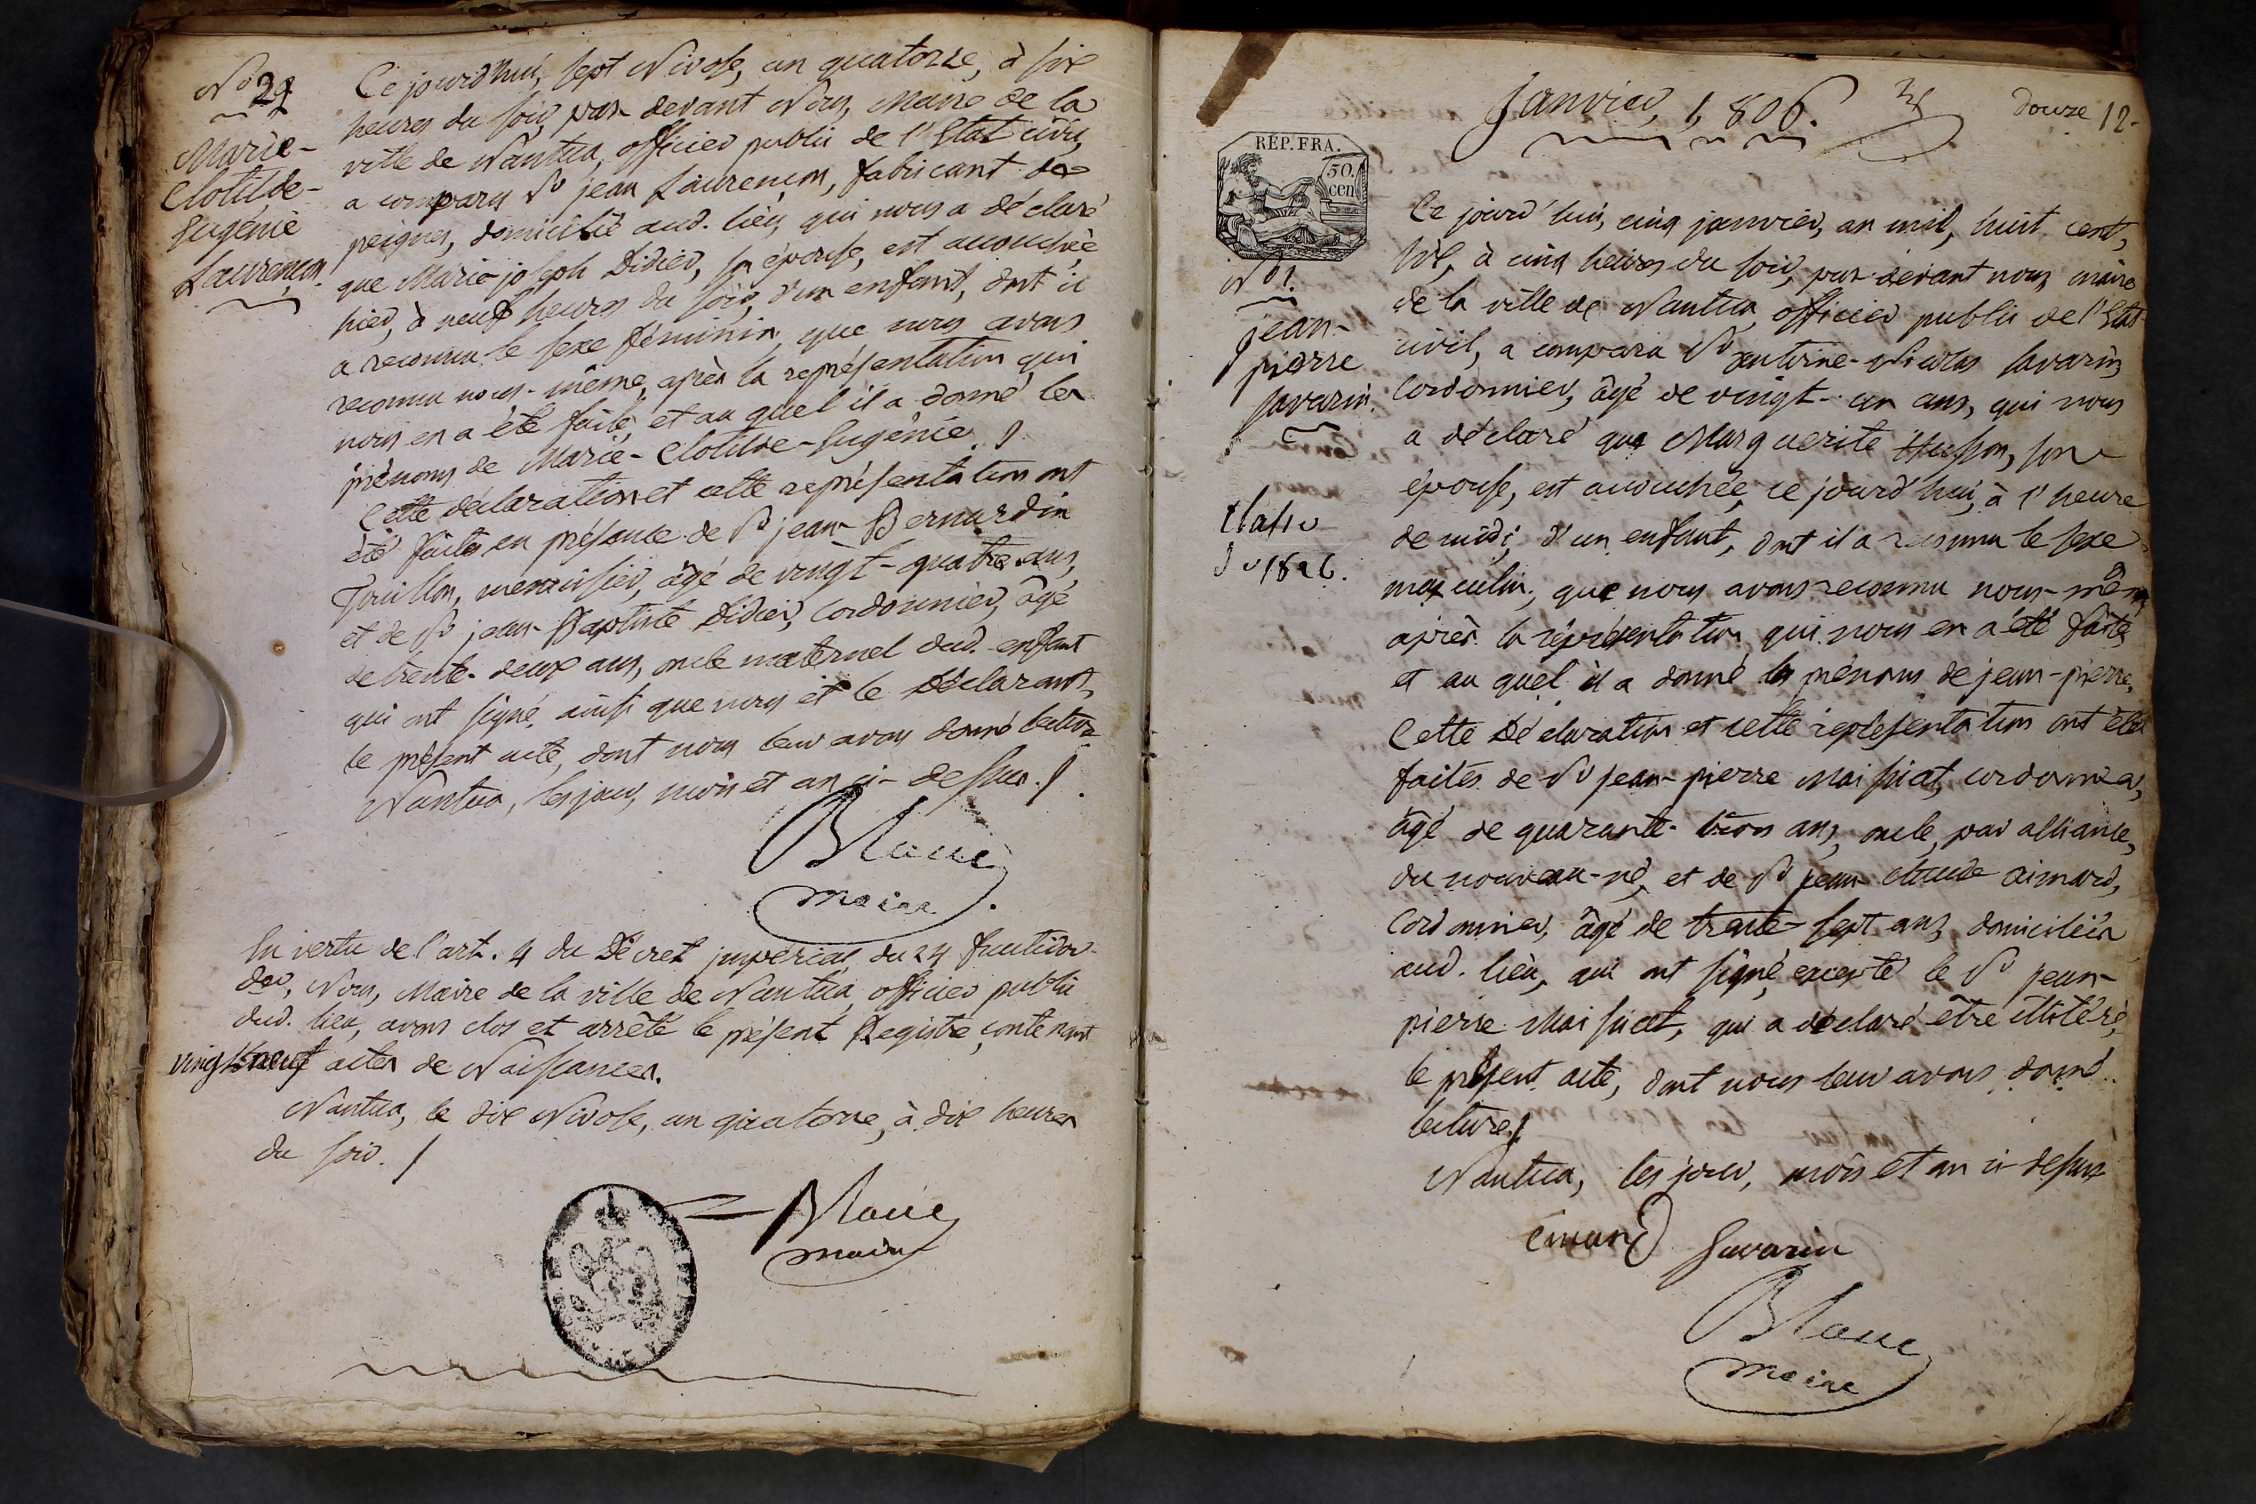 No 29
Marie-
Clotilde-
Eugénie
Laurençon.
Ce jourd'hui, sept Nivose, an quatorze, à six
heures du soir, par devant Nous, Maire de la
ville de Nantua, officier public de l'Etat civil,
a comparu Sr jean Laurençon, fabricant de
peignes, domicilié aud. lieu, qui nous a déclaré
que Marie-joseph Didier, son épouse, est accouchée
hier, à neuf heures du soir, d'un enfant, dont il
a reconnu le sexe féminin, que nous avons
reconnu nous-même, après la représentation qui
nous en a été faite, et au quel il a donné les
prénoms de Marie-Clotilde-Eugénie.
Cette déclaration et cette représentation ont
été faites en présence de Sr jean Bernardin
Touillon, menuisier, âgé de vingt-quatre ans,
et de Sr jean-Baptiste Didier, Cordonnier, âgé
de trente-deux ans, oncle maternel dud. enfant
qui ont signé, ainsi que nous et le Déclarant,
le présent acte, dont nous leur avons donné lecture
Nantua, les jour, mois et an ci-dessus.
Blanc
maire
En vertu de l'art. 4 du Décret impérial du 24 fructidor
der, Nous, Maire de la ville de Nantua, officier public
dud. lieu, avons clos et arrêté le présent Registre, contenant
vingt neuf actes de Naissances.
Nantua, le dix Nivose, an quatorze, à dix heures
du soir.
Blanc
maire
Janvier, 1,806.
douze 12.
REP. FRA.
50.
cen
No 1.
jean-
pierre
savarin.
du 1806.
Ce jourd'hui, cinq janvier, an mil, huit cent,
six, à cinq heures du soir, par devant nous, maire
de la ville de Nantua, officier public de l'Etat
civil, a comparu Sr antoine-Nicolas Savarin,
Cordonnier, âgé de vingt-un ans, qui nous
a déclaré que Marguerite Husson, son
épouse, est accouchée, ce jourd'hui, à l'heure
de midi, d'un enfant, dont il a reconnu le sexe
masculin, que nous avons reconnu nous-même,
après la représentation qui nous en a été faite,
et au quel il a donné les prénoms de jean-pierre,
Cette Déclaration et cette représentation ont été
faites de Sr jean-pierre Maissiat, cordonnier,
âgé de quarante-trois ans, oncle, par alliance,
du nouveau-né, et de Sr jean claude aimard,
Cordonnier, âgé de trente-sept ans, domiciliés
aud. lieu, qui ont signé, excepté le Sr jean-
pierre Maissiat, qui a déclaré être illitéré,
le présent acte, dont nous leur avons donné
lecture.
Nantua, les jour, mois et an ci-dessus
emard Savarin
Blanc
maire